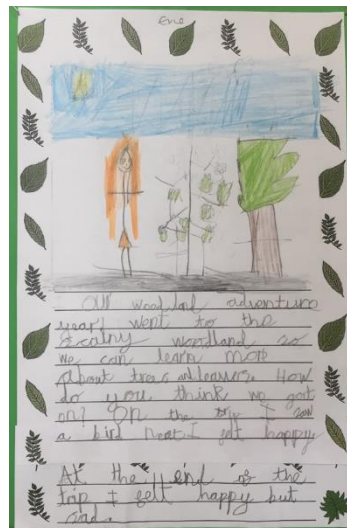 Eve
Our woodland adventure
year1 went to the
woodland so
we can learn more
About trees and leaves. How
do you think we got
on? On the trip I saw
a bird neat. I felt happy.
At the end of the
trip I felt happy but
sad.